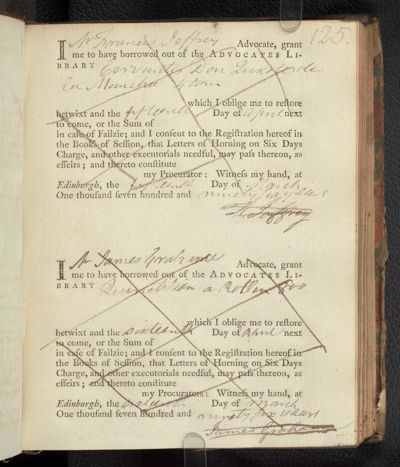 125.
I Mr Francis Jeffrey Advocate, grant
me to have borrowed out of the ADVOCATES LI-
BRARY Cervantes Don Quichotte
La Mancha 4 tom
which I oblige me to reſtore
betwixt and the fifteenth Day of April next
to come, or the Sum of
in caſe of Failzie; and I conſent to the Regiſtration hereof in
the Books of Seſſion, that Letters of Horning on Six Days
Charge, and other executorials needful, may paſs thereon, as
effeirs; and thereto conſtitute
my Procurator: Witneſs my hand, at
Edinburgh, the fifteenth Day of March
One thouſand ſeven hundred and ninety six years
F. Jeffrey
I Mr James Grahame Advocate, grant
me to have borrowed out of the ADVOCATES LI-
BRARY Quinctilian a Rollin 8vo
which I oblige me to reſtore
betwixt and the sixteenth Day of April next
to come, or the Sum of
in caſe of Failzie; and I conſent to the Regiſtration hereof in
the Books of Seſſion, that Letters of Horning on Six Days
Charge, and other executorials needful, may paſs thereon, as
effeirs; and thereto conſtitute
my Procurators: Witneſs my hand, at
Edinburgh, the sixteenth Day of March
One thouſand ſeven hundred and ninety six years
James Grahame